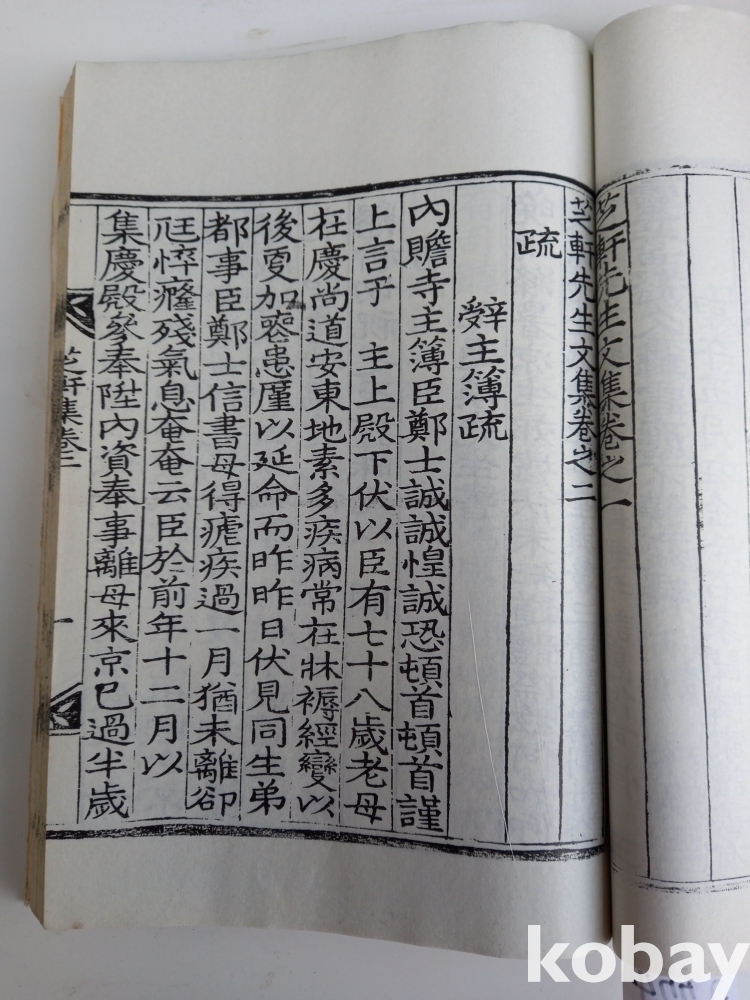 芝軒先生文集卷之一
芝軒先生文集卷之二
疏
辭主簿疏
內贍寺主簿臣鄭士誠誠惶誠恐頓首頓首謹
上言于 主上殿下伏以臣有七十八歲老母
在慶尚道安東地素多疾病常在牀褥經變以
後更加患廑以延命而昨昨日伏見同生弟
都事臣鄭士信書母得瘧疾過一月猶未離卻
尫悴癃殘氣息奄奄云臣於前年十二月以
集慶殿參奉陞內資奉事離母來京已過半歲
芝軒集卷二
一
kobay